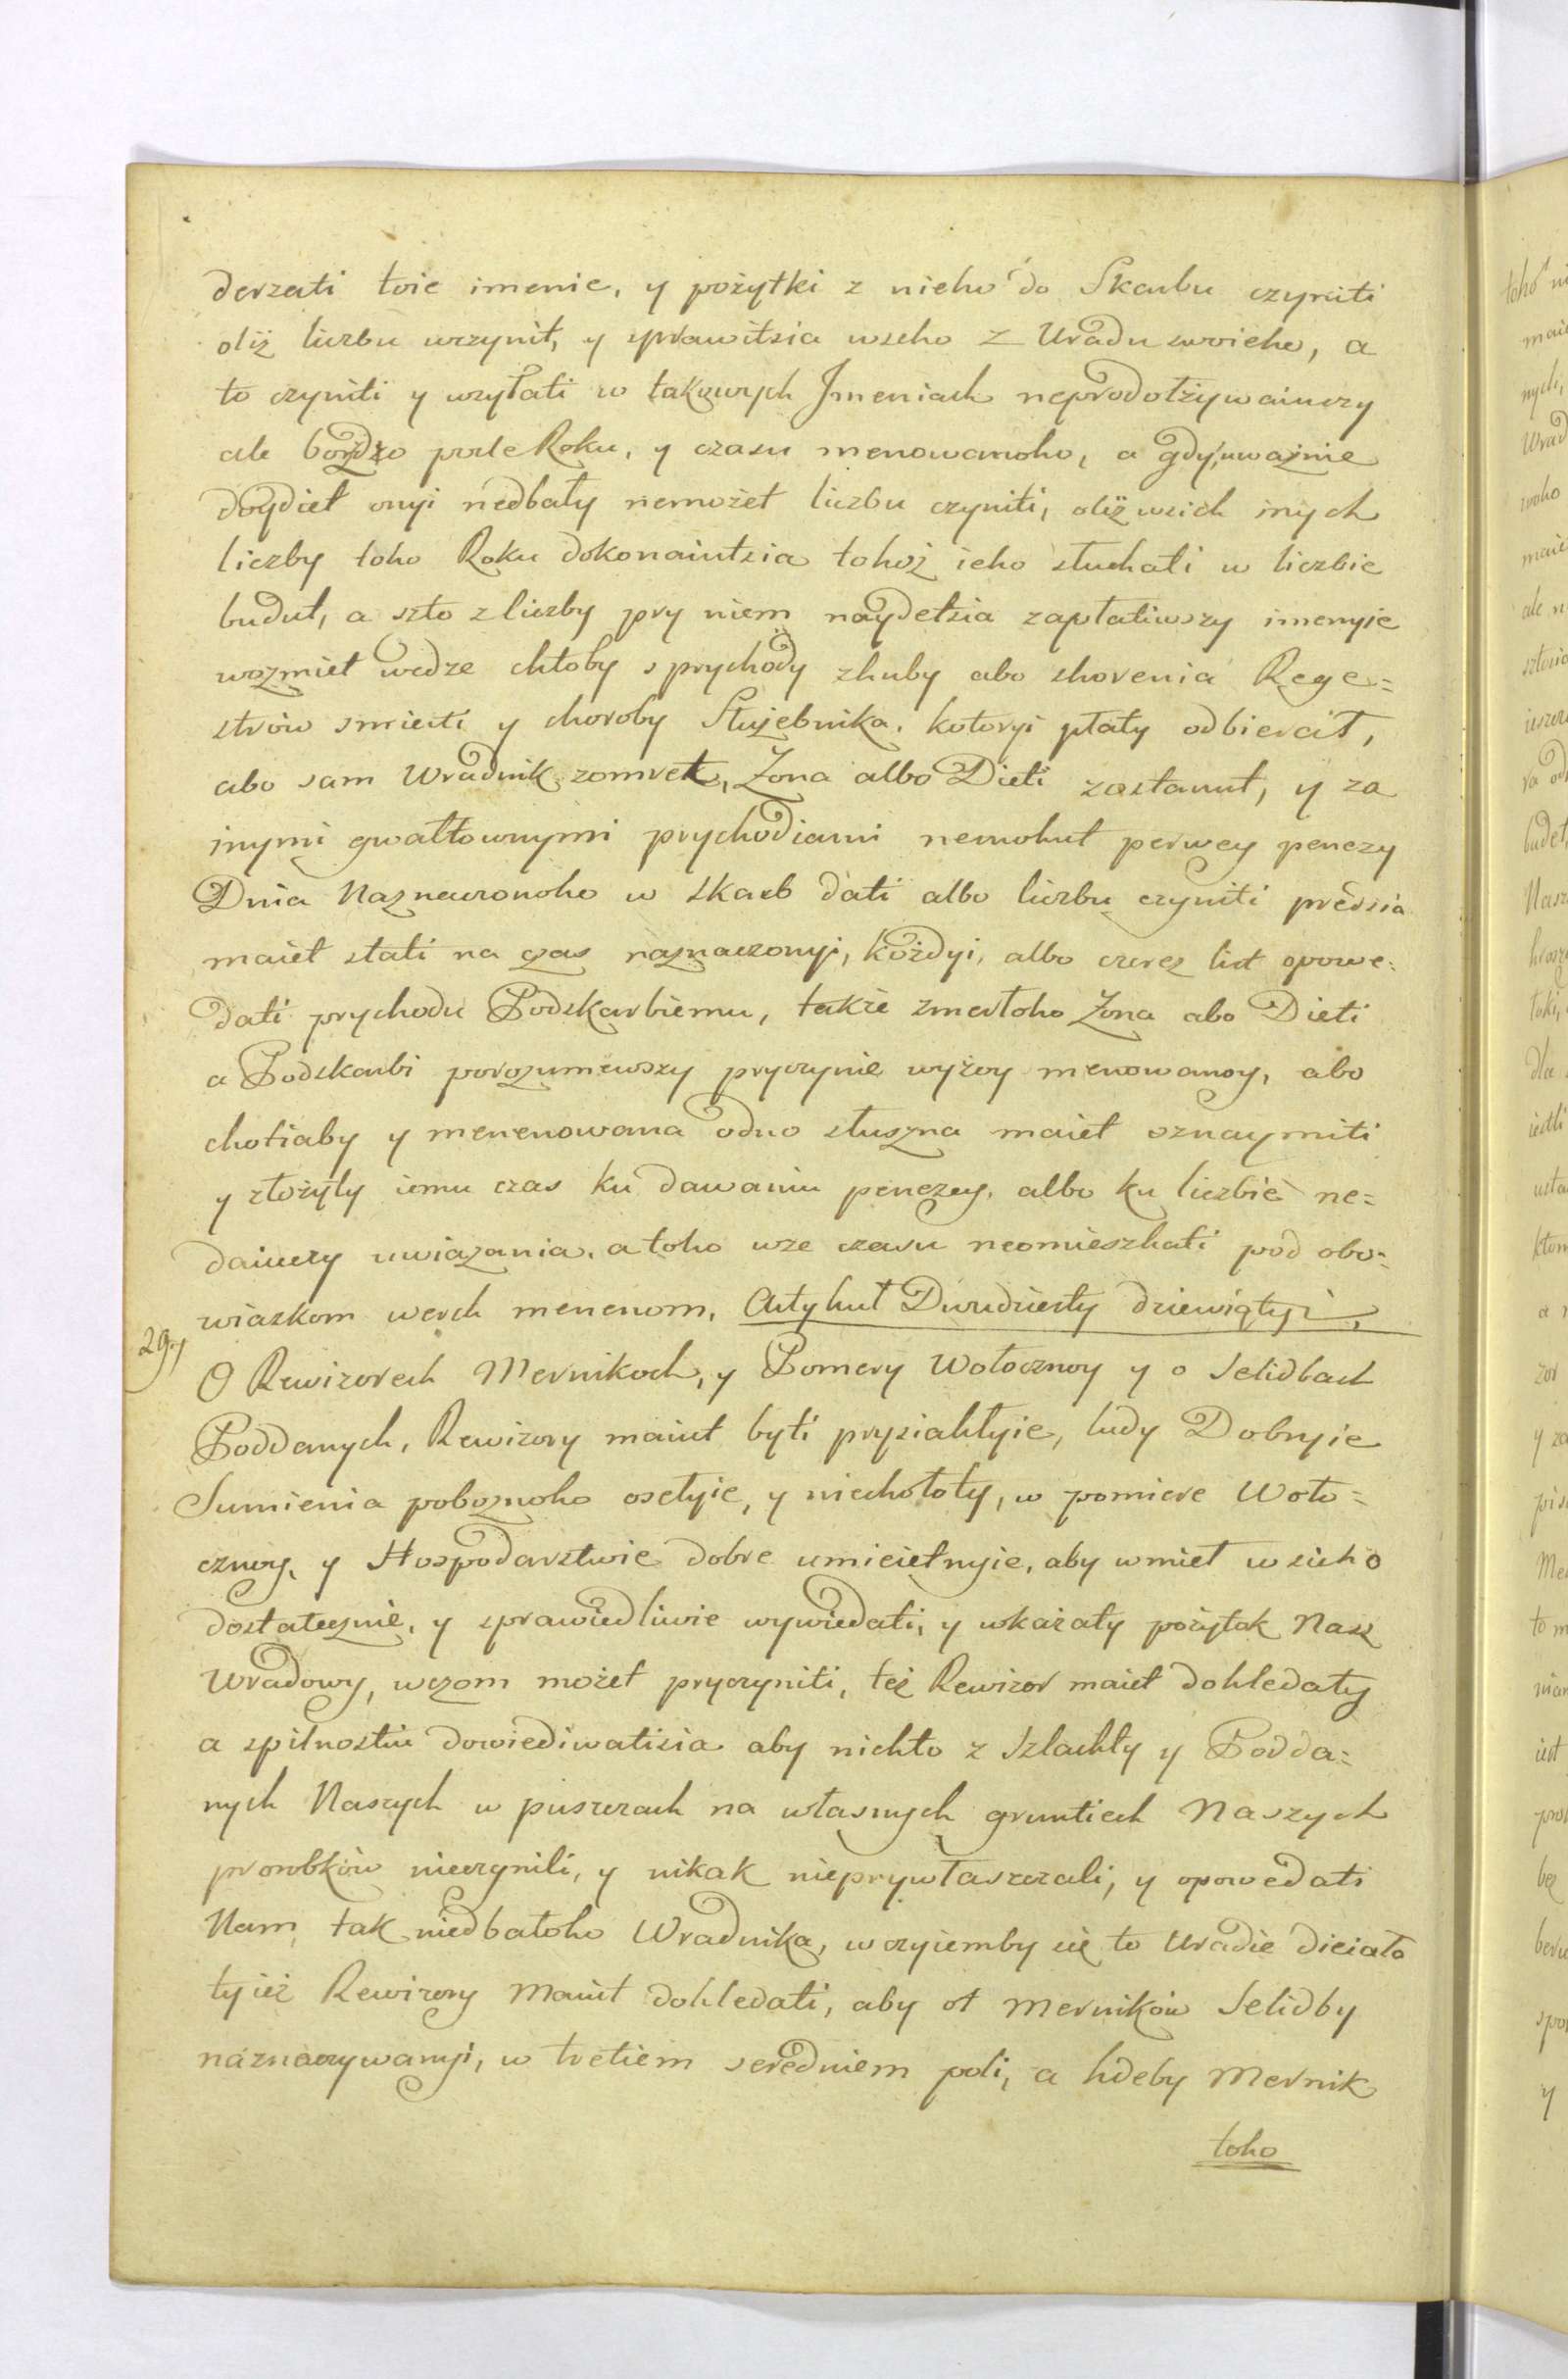 derzati toie imenie, y pożytki z nieho do Skarbu czyniti
oliż liczbu uczynit, y sprawitsia wseho z Uradu swoieho, a
to czyniti y wzyłati w takowych Jmeniach neprodołżywaiuczy
ale bordzo podle Roku, y czasu menowanoho, a gdy uważnie
doydiet onyi nedbały nemożet liczbu czyniti, oliż wsich inych
liczby toho Roku dokonaiutsia tohoż ieho słuchati w liczbie
budut, a szto z liczby pry niem naydetsia zapłatiwszy imenyie
wozmiet wedze chtoby s prychody zhuby abo shorenia Rege=
strów smierti y choroby Służebnika, kotoryi płaty odbierał,
abo sam Wradnik zomret, Zona albo Dieti zostanut, y za
inymi gwałtownymi prychodiami nemohut perwey penezy
Dnia Naznaczonoho w skarb dati albo liczbu czyniti predsia
maiet stati na czas naznaczonyi, kożdyi, albo czerez list opowe=
dati prychodu Podskarbiemu, takie zmerłoho Zona abo Dieti
a Podskarbi porozumewszy pryczynie wyżey menowanoy, abo
chotiaby y menenowana odno słuszna maiet oznaymiti
y złożyty iemu czas ku dawaniu penezey, albo ku liczbie ne=
daiuczy uwiazania, a toho uże czasu neomieszkati pod obo=
wiazkom werch menenom. Artykuł Dwudziesty dziewiątyi,
29.y
O Rewizorech Mernikoch, y Pomery Wołocznoy y o Selidbach
Poddanych, Rewizory maiut byti prysiahłyie, ludy Dobryie
Sumienia pobożnoho osełyie, y niechołoty, w pomiere Woło=
cznoy, y Hospodarstwie dobre umieiętnyie, aby wmieł wsieho
dostatecznie, y sprawiedliwie wywiedati, y wkazaty pożytok Nasz
Wradowy, wczom możet pryczyniti, też Rewizor maiet dohledaty
a spilnostiu dowiediwatisia aby nichto z Szlachty y Podda=
nych Naszych w puszczach na własnych gruntiech Naszych
prorobków nieczynili, y nikak nieprywłaszczali, y opowedati
Nam tak niedbałoho Wradnika, w czyiemby się to Uradie dieiało
tyież Rewizory Maiut dohledati, aby ot Merników Selidby
naznaczywanyi, w tretiem seredniem poli, a hdeby Mernik
toho